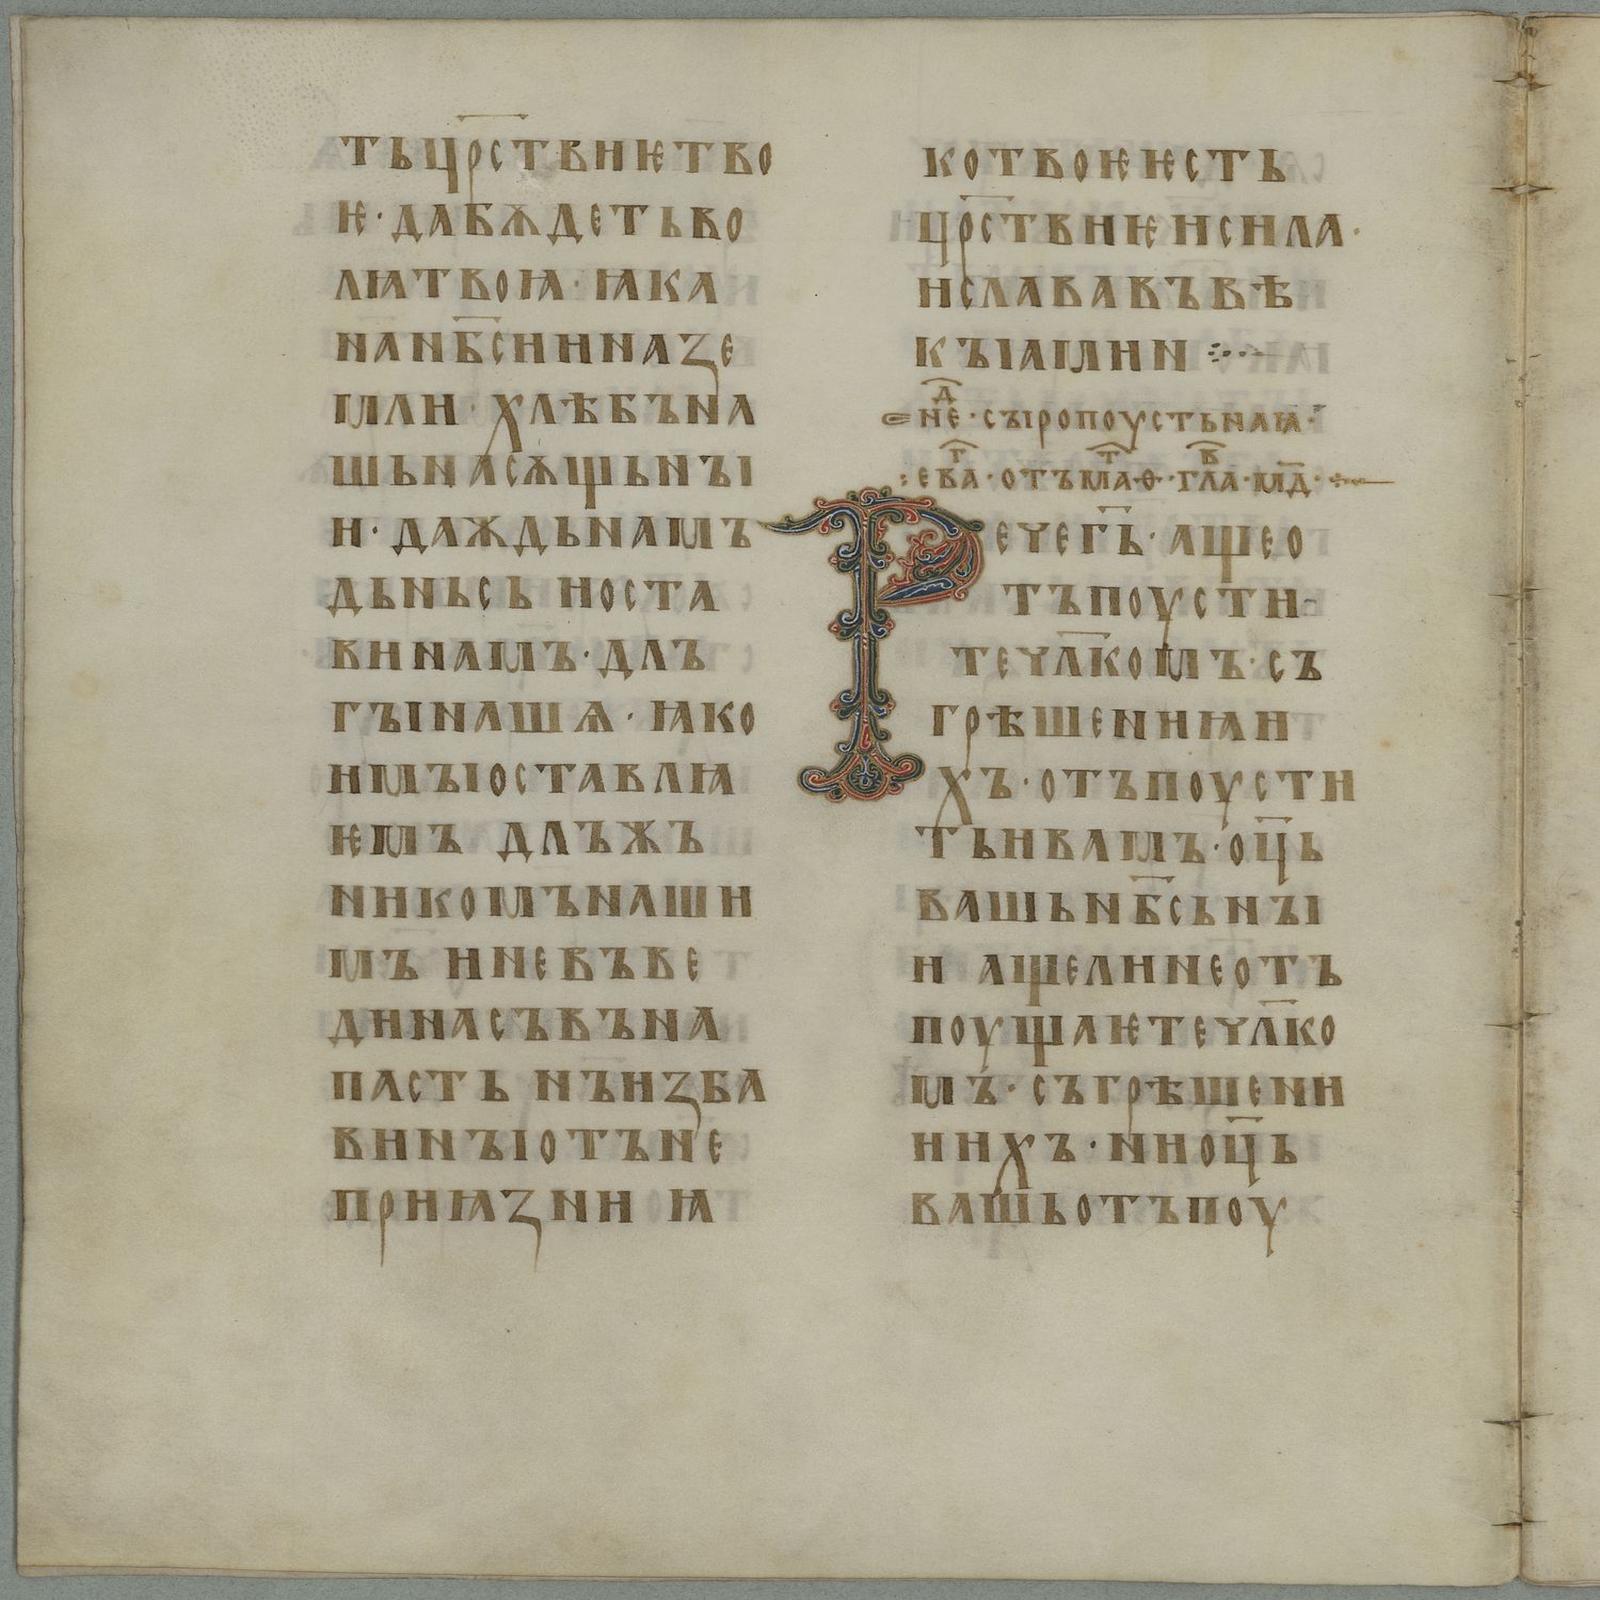 тьцр҃ствиѥтво
ѥ· дабѫдетьво
лꙗтвоꙗ· ꙗка
нанб҃сииназе
мли· хлѣбъна
шьнасѫщьнꙑ
и· даждьнамъ
дьньсь иоста
винамъ· длъ
гꙑнашѧ· ꙗко
имꙑоставлꙗ
ѥмъ длъжь
никомънаши
мъ иневъве
динасъвъна
пасть нъизба
винꙑотъне
приꙗзни ꙗ
котвоѥѥсть
цр҃ствиѥисила·
иславававъвѣ
кꙑамин
нед҃· сꙑропоустьнаꙗ·
ева҃г· отъмат҃ѳ· глав҃· м҃д·
Речег҃ь· ащео
тъпоусти
течл҃комъ· съ
грѣшенниꙗи
хъ· отъпоусти
тьивамъ· оц҃ь
вашьнб҃сьнꙑ
и ащелинеотъ
поущаѥтечл҃ко
мъ· съгрѣшени
иихъ· ниоц҃ь
вашьотъпоу